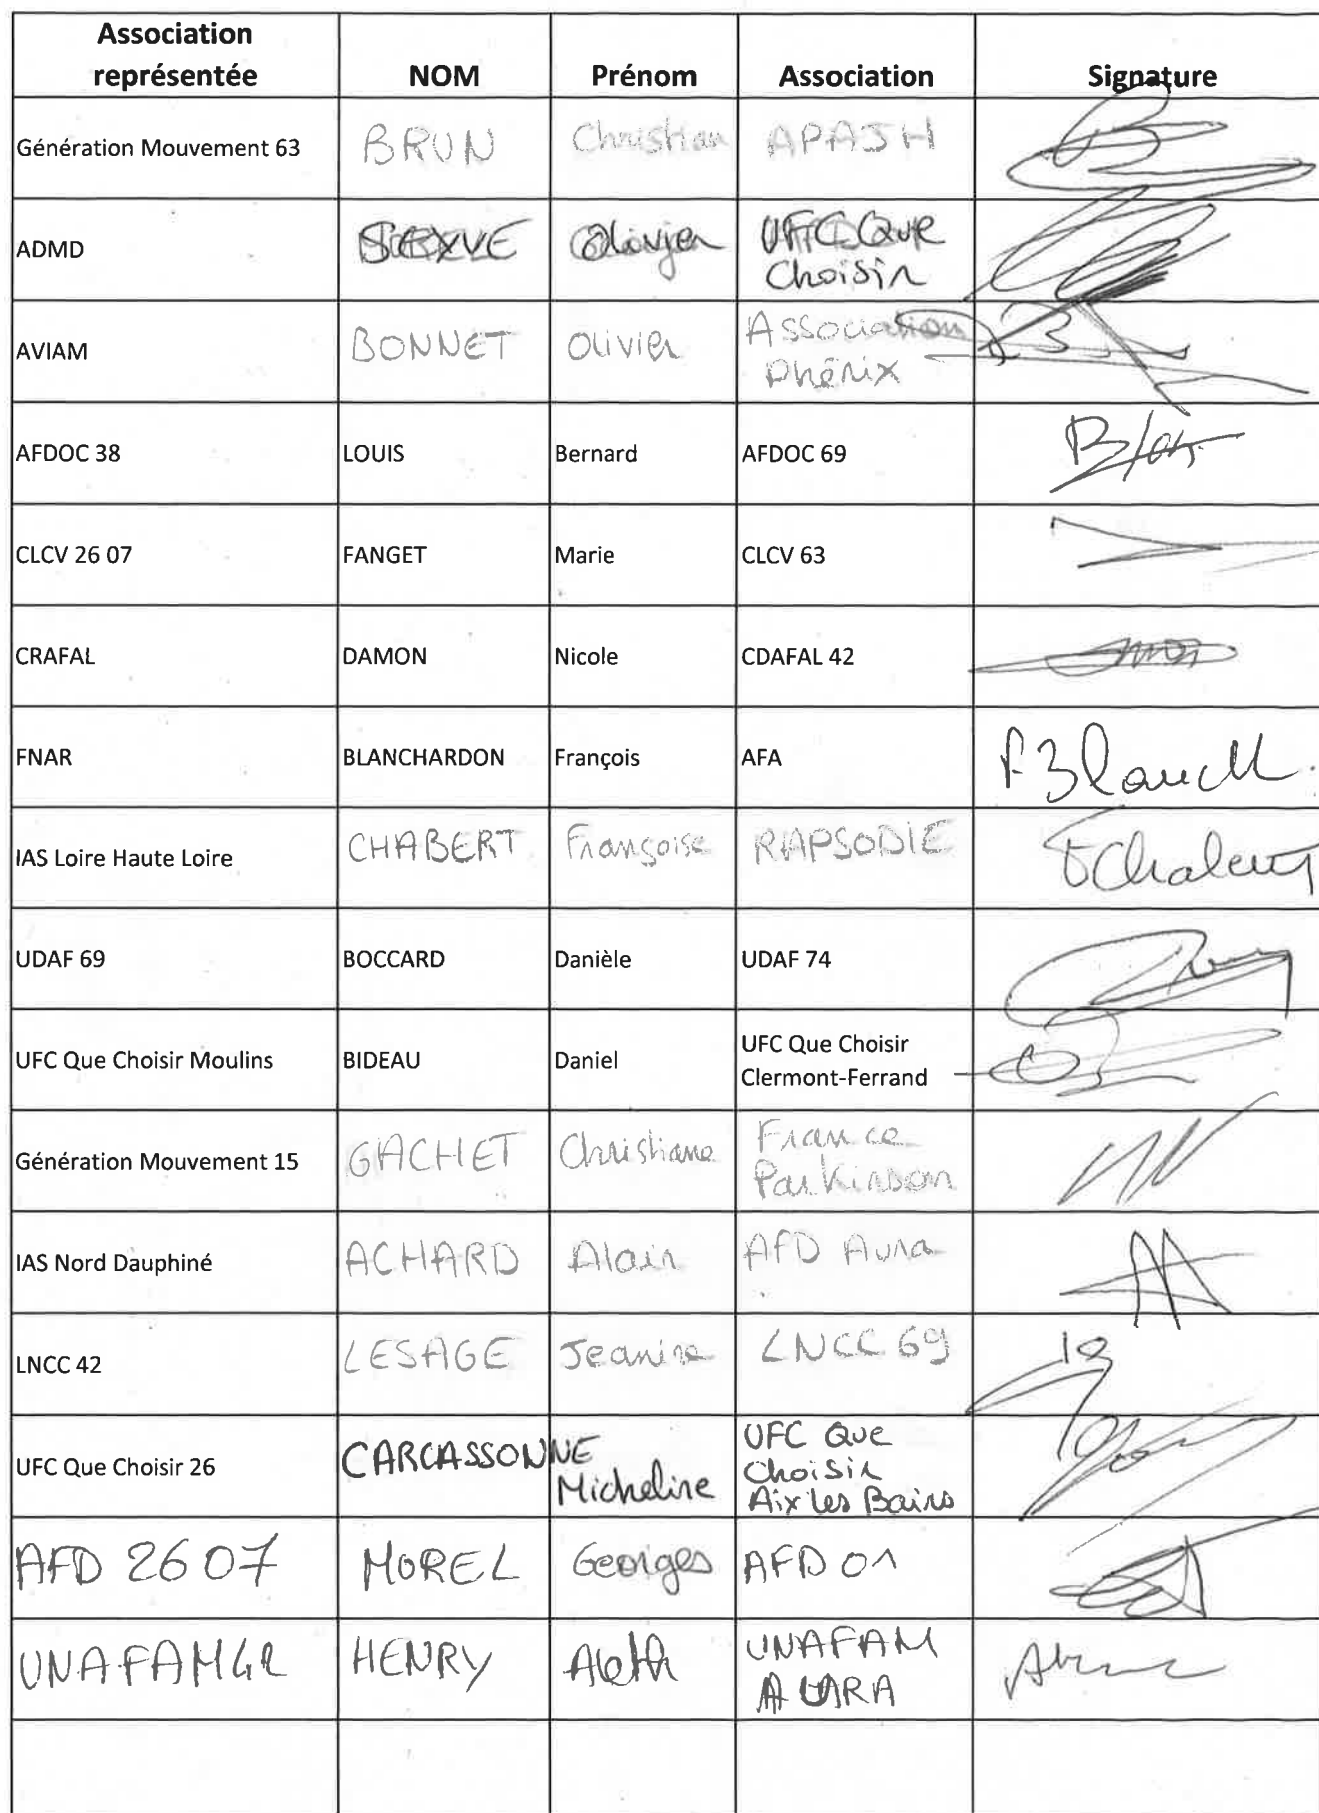 Association
représentée NOM Prénom Association Signature
Génération Mouvement 63 BRUN Christian APAJH
ADMD Olivier UFC Que
Choisir
AVIAM BONNET Olivier Association
Phénix
AFDOC 38 LOUIS Bernard AFDOC 69
CLCV 26 07 FANGET Marie CLCV 63
CRAFAL DAMON Nicole CDAFAL 42
FNAR BLANCHARDON François AFA F Blanch.
IAS Loire Haute Loire CHABERT Françoise RAPSODIE FChabert
UDAF 69 BOCCARD Danièle UDAF 74
UFC Que Choisir Moulins BIDEAU Daniel UFC Que Choisir
Clermont-Ferrand
Génération Mouvement 15 GACHET Christiane France
Parkinson
IAS Nord Dauphiné ACHARD Alain AFD Aura
LNCC 42 LESAGE Jeanine LNCC 69
UFC Que Choisir 26 CARCASSONNE Micheline UFC Que
Choisir
Aix les Bains
AFD 26 07 MOREL Georges AFD 01
HENRY Aleth UNAFAM
AURA